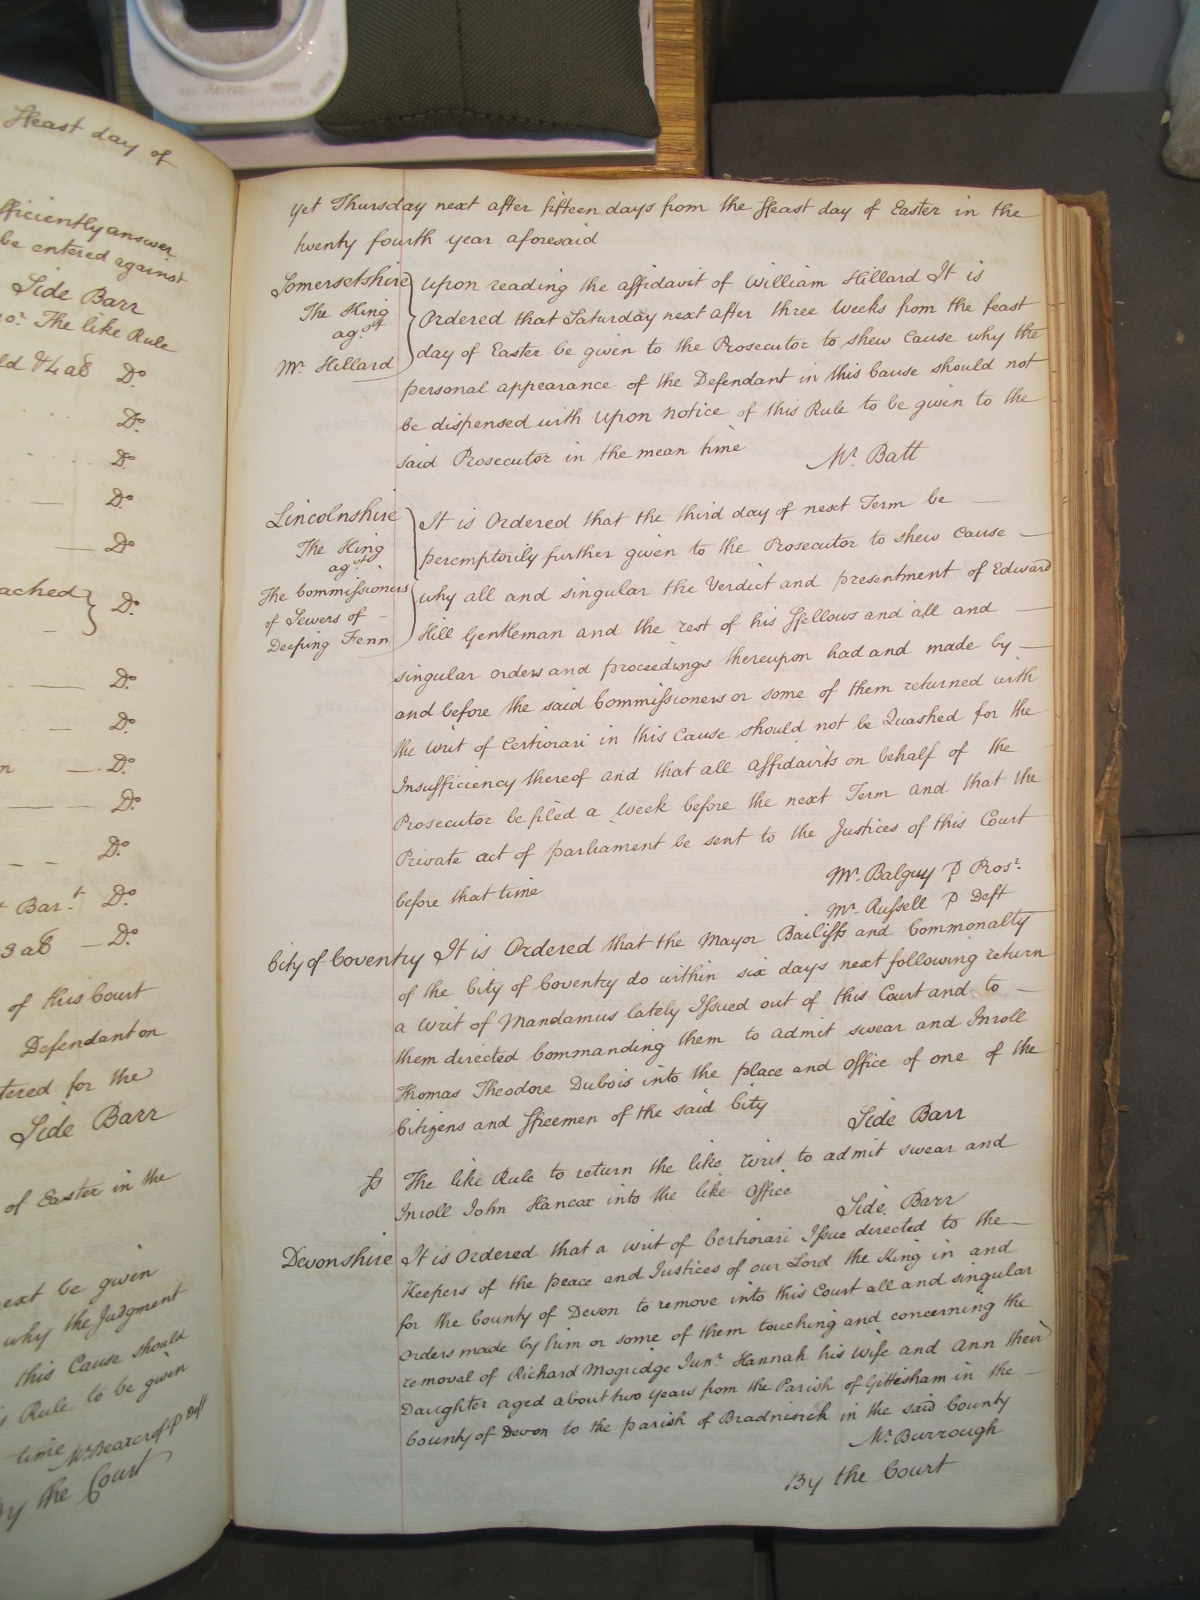 Feast day of
fficiently answer
be entered against
Side Barr
The like Rule
D.o
D.o
D.o
D.o
D.o
ached } D.o
D.o
D.o
D.o
D.o
D.o
Bar.t D.o
D.o
of this Court
Defendant on
tered for the
Side Barr
of Easter in the
ext be given
why the Judgment
this Cause should
Rule to be given
time Mr. Bearcroft P Deft
By the Court
yet Thursday next after fifteen days from the ffeast day of Easter in the
twenty fourth year aforesaid
Somersetshire
The King
ag.st
Mr. Hillard
Upon reading the affidavit of William Hillard It is
Ordered that Saturday next after three Weeks from the feast
day of Easter be given to the Prosecutor to shew Cause why the
personal appearance of the Defendant in this Cause should not
be dispensed with Upon notice of this Rule to be given to the
said Prosecutor in the mean time
Mr. Batt
Lincolnshire
The King
ag.st
The Commissioners
of Sewers of
Deeping Fenn
It is Ordered that the third day of next Term be
peremptorily further given to the Prosecutor to shew Cause
why all and singular the Verdict and presentment of Edward
Hill Gentleman and the rest of his ffellows and all and
singular orders and proceedings thereupon had and made by
and before the said Commissioners or some of them returned with
the Writ of Certiorari in this Cause should not be Quashed for the
Insufficiency thereof and that all affidavits on behalf of the
Prosecutor be filed a Week before the next Term and that the
Private act of parliament be sent to the Justices of this Court
before that time
Mr. Balguy P Pros.r
Mr. Russell P Deft
City of Coventry It is Ordered that the Mayor Bailiffs and Commonalty
of the City of Coventry do within six days next following return
a Writ of Mandamus lately Issued out of this Court and to
them directed Commanding them to admit swear and Inroll
Thomas Theodore Dubois into the place and Office of one of the
Citizens and ffreemen of the said City
Side Barr
fs The like Rule to return the like Writ to admit swear and
Inroll John Hancox into the like Office
Side Barr
Devonshire It is Ordered that a Writ of Certiorari Issue directed to the
Keepers of the peace and Justices of our Lord the King in and
for the County of Devon to remove into this Court all and singular
Orders made by him or some of them touching and concerning the
removal of Richard Mogridge Jun.r Hannah his Wife and Ann their
Daughter aged about two Years from the Parish of Gittisham in the
County of Devon to the parish of Bradninch in the said County
Mr. Burrough
By the Court